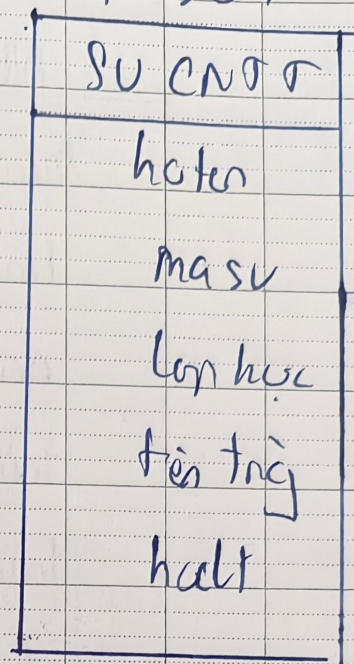 SV CNTT
hoten
masv
lop học
tên trg